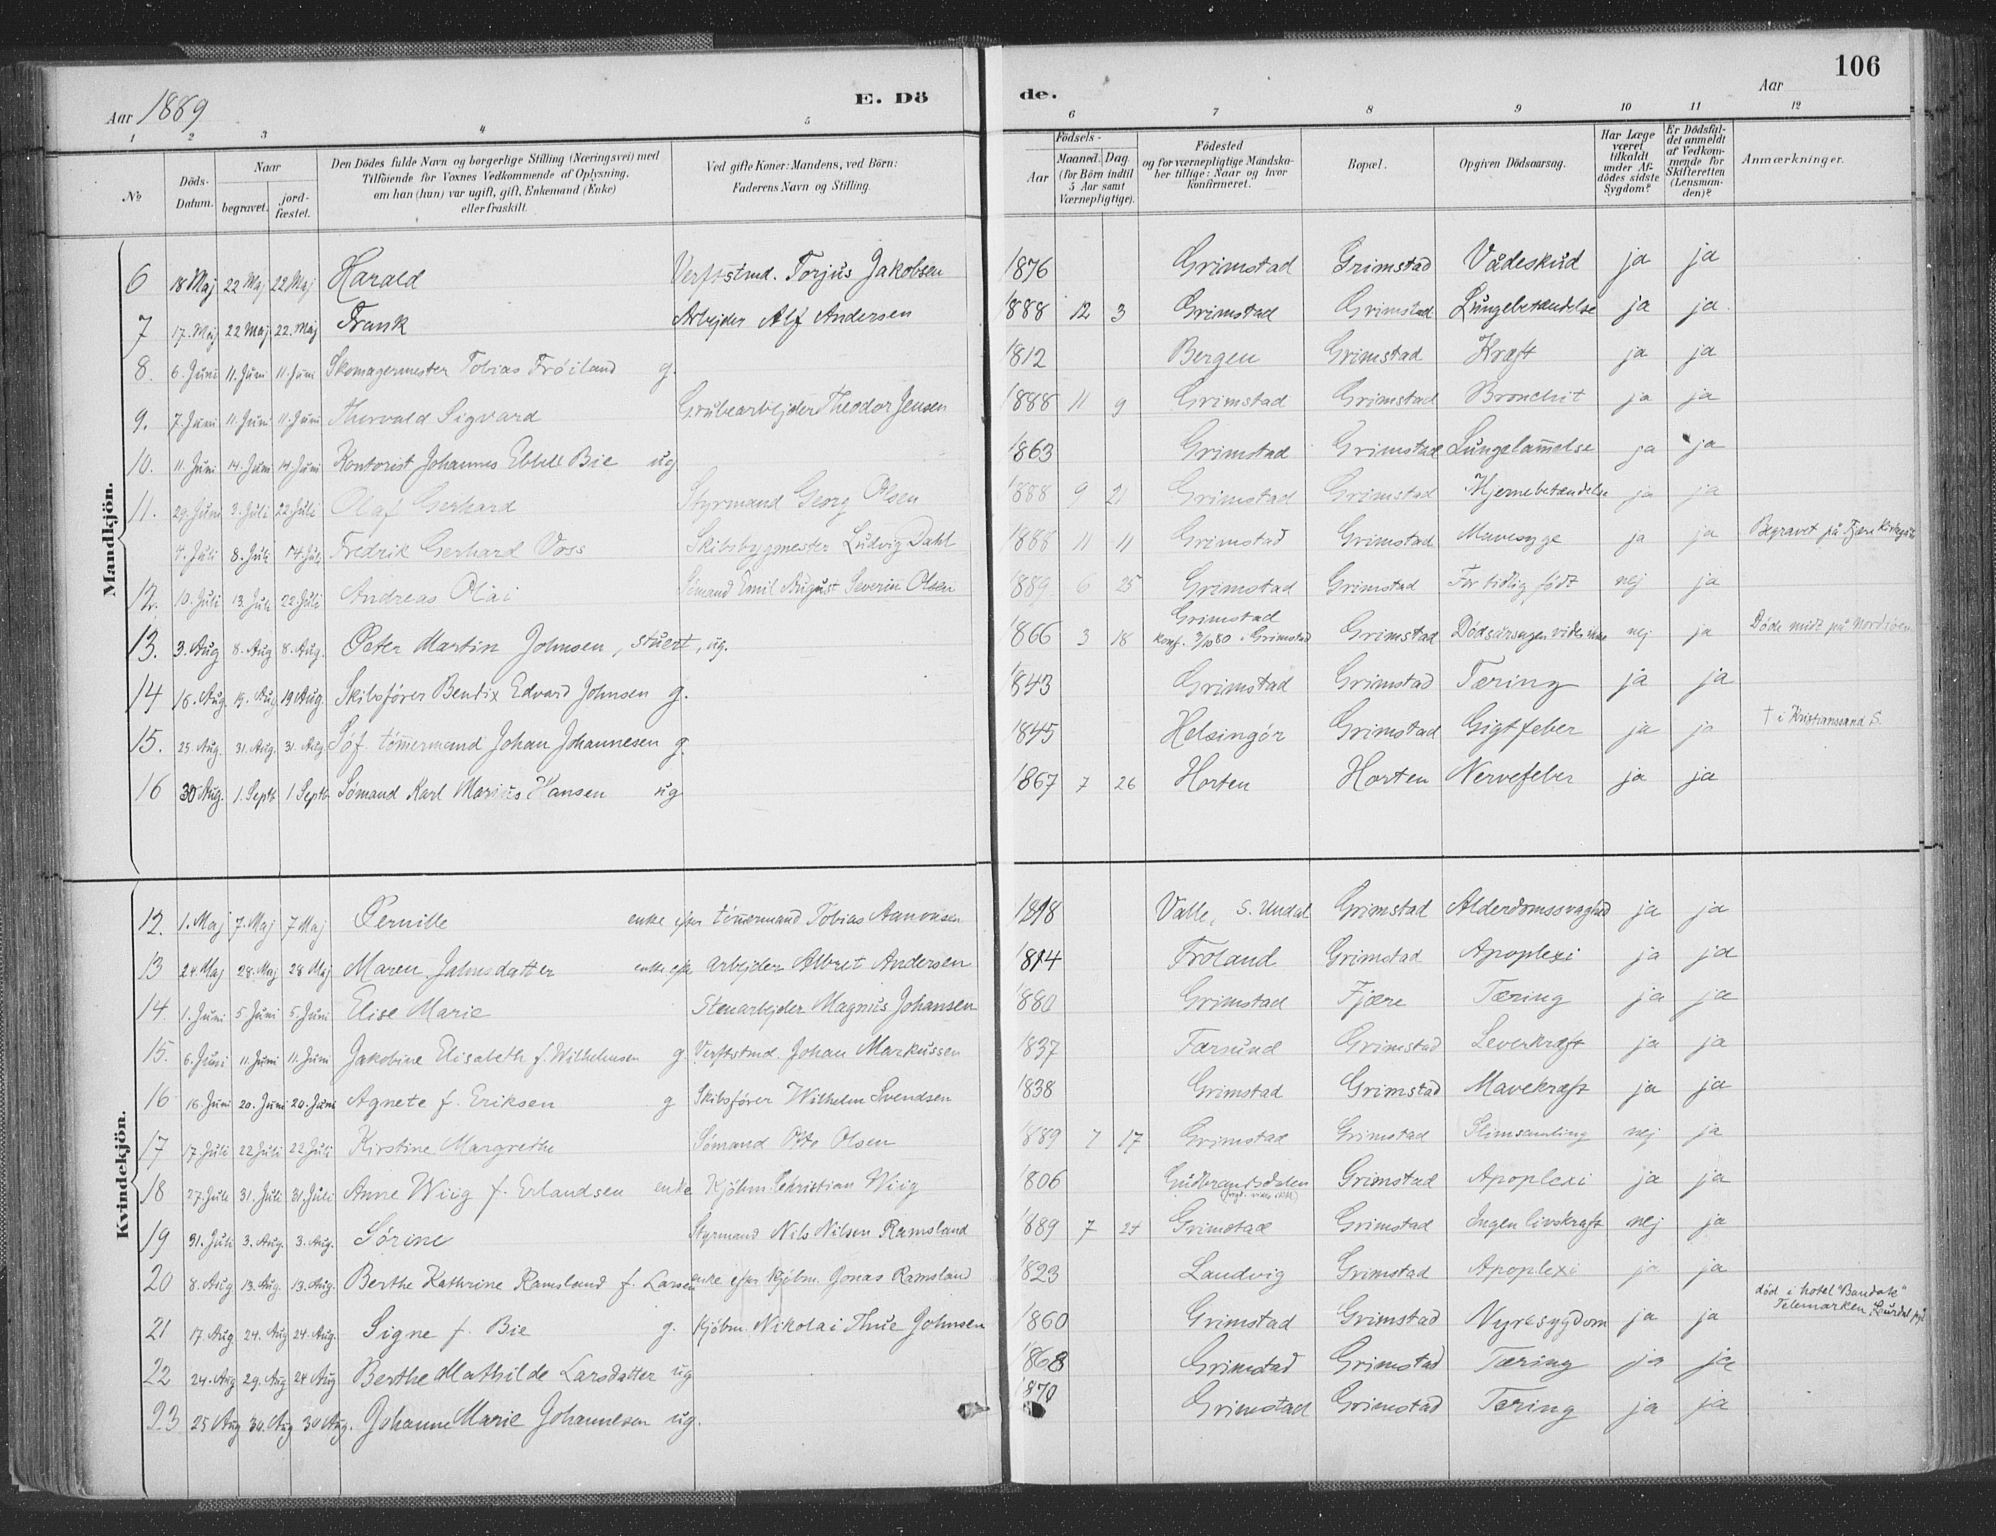 106
Aar 1889
E. Dö
de.
Aar
1 2 3 4 5 6 7 8 9 10 11 12
No
Döds-Datum.
Naar
begravet.
jord-fæstet.
Den Dödes fulde Navn og borgerlige Stilling (Næringsvei) med
Tilföiende for Voxnes Vedkommende af Oplysning,
om han (hun) var ugift, gift, Enkemand (Enke)
eller fraskilt.
Ved gifte Koner: Mandens, ved Börn:
Faderens Navn og Stilling.
Födsels-
Aar
Maaned. Dag.
(for Börn indtil
5 Aar samt
Værnepligtige).
Födested
og for værnepligtige Mandska-
ber tillige: Naar og hvor
konfirmeret.
Bopæl.
Opgiven Dödsaarsag.
Har Læge
været
tilkaldt
under Af-
dödes sidste
Sygdom?
Er Dödsfal-
det anmeldt
af Vedkom-
mende for
Skifteretten
(Lensman-
den)?
Anmærkninger.
Mandkjön.
6 18 Maj 22 Maj 22 Maj Harald Verftstmd. Torjus Jakobsen 1876 Grimstad Grimstad Vådeskud ja ja
7 17. Maj 22 Maj 22. Maj Frank Arbejder Alf Andersen 1888 12 3 Grimstad Grimstad Lungebetændelse ja ja.
8. 6. Juni 11. Juni 11. Juni Skomagermester Tobias Fröiland g. 1812 Bergen Grimstad Kræft ja ja
9. 7. Juni 11. Juni 11. Juni Thorvald Sigvard Grubearbejder Theodor Jensen 1888 11 9 Grimstad Grimstad Bronchit ja ja
10. 11. Juni 14. Juni 14. Juni Kontorist Johannes Ebbell Bie ug 1863 Grimstad Grimstad Lungelam̄else ja ja
11. 29. Juni 3. Juli 22. Juli Olaf Gerhard Styrmand Georg Olsen 1888 9 21 Grimstad Grimstad Hjernebetændelse ja ja
4. Juli 8. Juli 14. Juli Fredrik Gerhard Voss Skibsbygmester Ludvig Dahl 1888 11 11 Grimstad Grimstad Mavesyge ja ja Begravet på Fjære
12. 10. Juli 13. Juli 22. Juli Andreas Olai Sömand Emil August Severin Olsen 1889 6 25 Grimstad Grimstad For tidlig födt nej ja
13. 3. Aug 8. Aug 8. Aug. Peter Martin Johnsen, stuert, ug. 1866 3 18 Grimstad konf. 3/10 80 i Grimstad Grimstad Dödsårsagen vides ikke nej ja Döde midt på Nordsöen
14 16. Aug 19. Aug 19 Aug. Skibsförer Bendix Edvard Johnsen g. 1843 Grimstad Grimstad Tæring ja ja
15. 25. Aug. 31. Aug. 31. Aug. Söf. töm̄ermand Johan Johannesen g. 1845 Helsingör Grimstad Gigtfeber ja ja † i Kristianssand S.
16 30 Aug. 1. Septb 1 Septb Sömand Karl Marius Hansen ug 1867 7 26 Horten Horten Nervefeber ja ja
Kvindekjön.
12. 1. Maj 7. Maj 7 Maj Pernille enke efter töm̄ermand Tobias Aanonsen 1818 Valle, S. Undal Grimstad Alderdomssvaghed ja ja
13 24. Maj 28. Maj 28 Maj Maren Jahnsdatter enke efter arbejder Albret Andersen 1814 Froland Grimstad Apoplexi ja ja
14. 1. Juni 5 Juni 5. Juni Elise Marie Stenarbejder Magnus Johansen 1880 Grimstad Fjære Tæring ja ja
15. 6. Juni 11. Juni 11. Juni Jakobine Elisabeth f. Wilhelmsen g. Verftstmd. Johan Markussen 1837 Farsund Grimstad Leverkræft ja ja
16 16. Juni 20. Juni 20. Juni Agnete f. Eriksen g Skibsförer Wilhelm Svendsen 1838 Grimstad Grimstad Mavekræft ja ja
17 17. Juli 22 Juli 22 Juli Kirstine Margrethe Sömand Otto Olsen 1889 7 17 Grimstad Grimstad Slimsamling nej ja
18 27. Juli 31. Juli 31. Juli Anne Wiig f. Erlandsen enke Kjöbm. Christian Wiig 1806 Gudbrandsdalen Grimstad Apoplexi ja ja
19 31. Juli 3. Aug. 3. Aug. Sörine Styrmand Nils Nilsen Ramsland 1889 7 24 Grimstad Grimstad Ingen livskraft nej ja
20 8. Aug 13. Aug 13. Aug. Berthe Kathrine Ramsland f. Larsen enke efter kjöbm. Jonas Ramsland 1823 Landvig Grimstad Apoplexi ja ja
21 17. Aug 24. Aug 24. Aug. Signe f. Bie g. Kjöbm. Nikolai Thue Johnsen 1860 Grimstad Grimstad Nyresygdom ja ja död i hotel "Bandak" Telemarken
22 24. Aug 29. Aug 29 Aug Berthe Mathilde Larsdatter ug 1868 Grimstad Grimstad Tæring ja ja
23 25 Aug 30. Aug 30 Aug. Johanne Marie Johannesen ug. 1870 Grimstad Grimstad Tæring ja ja